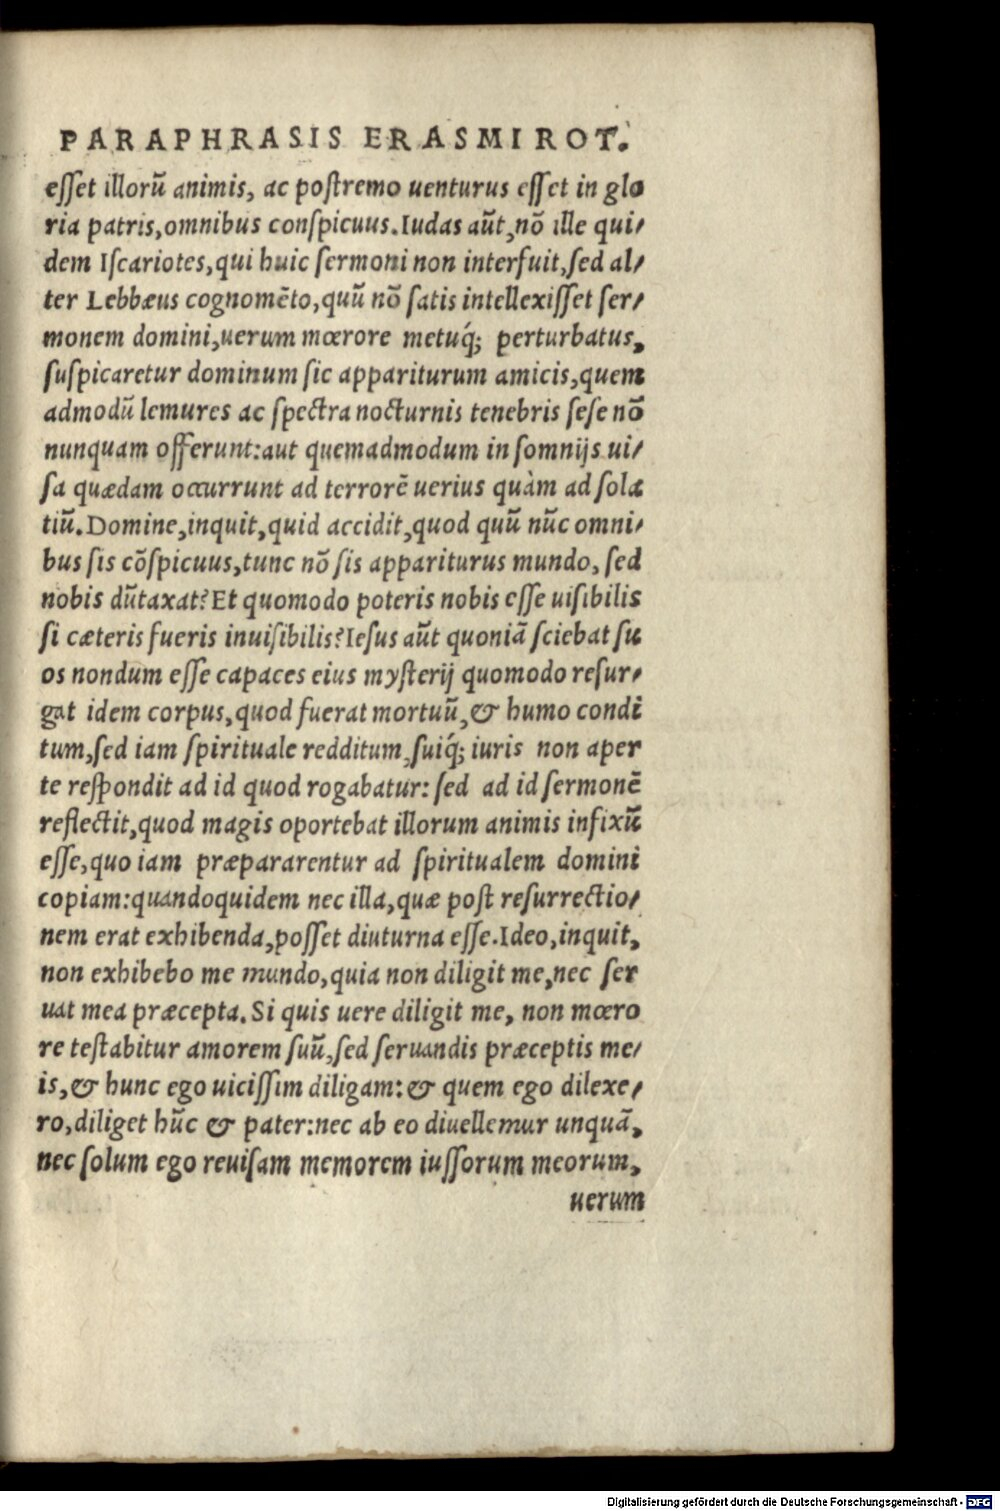 PARAPHRASIS ERASMI ROT.
eſſet illorū animis, ac poſtremo uenturus eſſet in glo
ria patris, omnibus conſpicuus. Iudas aūt, nō ille qui⸗
dem Iſcariotes, qui huic ſermoni non interfuit, ſed al⸗
ter Lebbæus cognomēto, quū nō ſatis intellexiſſet ſer⸗
monem domini, uerum mœrore metuq́; perturbatus,
ſuſpicaretur dominum ſic appariturum amicis, quem
admodū lemures ac ſpectra nocturnis tenebris ſeſe nō
nunquam offerunt: aut quemadmodum in ſomnijs ui⸗
ſa quædam occurrunt ad terrorē uerius quàm ad ſola
tiū. Domine, inquit, quid accidit, quod quū nūc omni⸗
bus ſis cōſpicuus, tunc nō ſis appariturus mundo, ſed
nobis dūtaxat? Et quomodo poteris nobis eſſe uiſibilis
ſi cæteris fueris inuiſibilis? Ieſus aūt quoniā ſciebat ſu
os nondum eſſe capaces eius myſterij quomodo reſur⸗
gat idem corpus, quod fuerat mortuū, & humo condi
tum, ſed iam ſpirituale redditum, ſuiq́; iuris non aper
te reſpondit ad id quod rogabatur: ſed ad id ſermonē
reflectit, quod magis oportebat illorum animis infixū
eſſe, quo iam præpararentur ad ſpiritualem domini
copiam: quandoquidem nec illa, quæ poſt reſurrectio⸗
nem erat exhibenda, poſſet diuturna eſſe. Ideo, inquit,
non exhibebo me mundo, quia non diligit me, nec ſer
uat mea præcepta. Si quis uere diligit me, non mœro
re teſtabitur amorem ſuū, ſed ſeruandis præceptis me⸗
is, & hunc ego uiciſſim diligam: & quem ego dilexe⸗
ro, diliget hūc & pater: nec ab eo diuellemur unquā,
nec ſolum ego reuiſam memorem iuſſorum meorum,
uerum
Digitalisierung gefördert durch die Deutsche Forschungsgemeinschaft - DFG